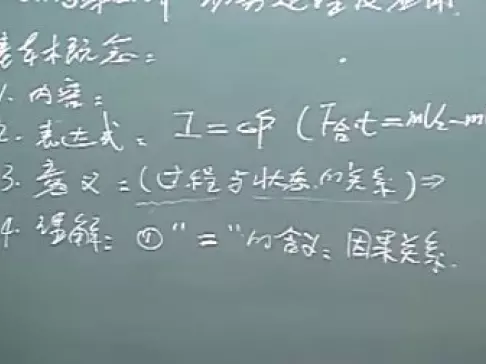 动量定理及应用
基本概念：
1. 内容：
2. 表达式：I=ΔP (F合·t=mV₂-m
3. 意义：(过程与状态的关系)⇒
4. 理解：① "="的含义：因果关系.